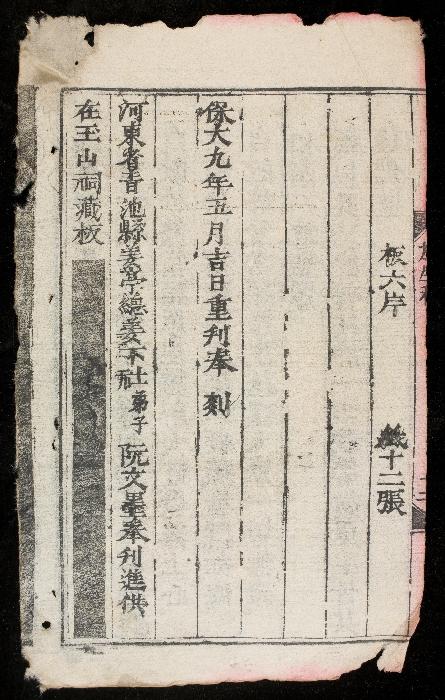 板六片
紙十二張
保大九年五月吉日重刊奉刻
河東省青池縣姜亭總姜下社弟子阮文墨奉刊進供
在玉山祠藏板